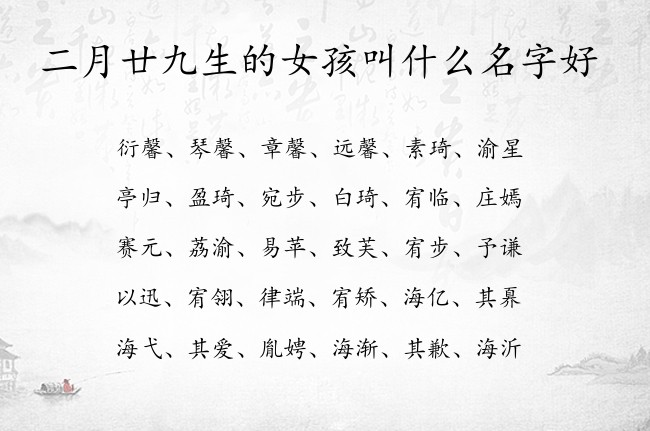 二月廿九生的女孩叫什么名字好
衍馨、琴馨、章馨、远馨、素琦、渝星
亭归、盈琦、宛步、白琦、宥临、庄嫣
赛元、荔渝、易苹、致芙、宥步、予谦
以迅、宥翎、律端、宥矫、海亿、其昦
海弋、其爱、胤娉、海渐、其歉、海沂